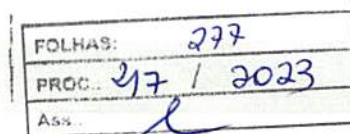 FOLHAS: 277
PROC.: 217 / 2023
Ass.: